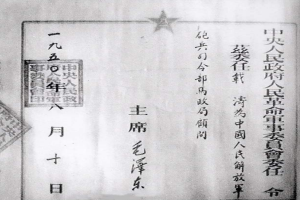 中央人民政府人民革命軍事委員會委任令
茲委任載濤為中國人民解放軍
砲兵司令部馬政局顧問
主席 毛澤东
一九五〇年八月十日